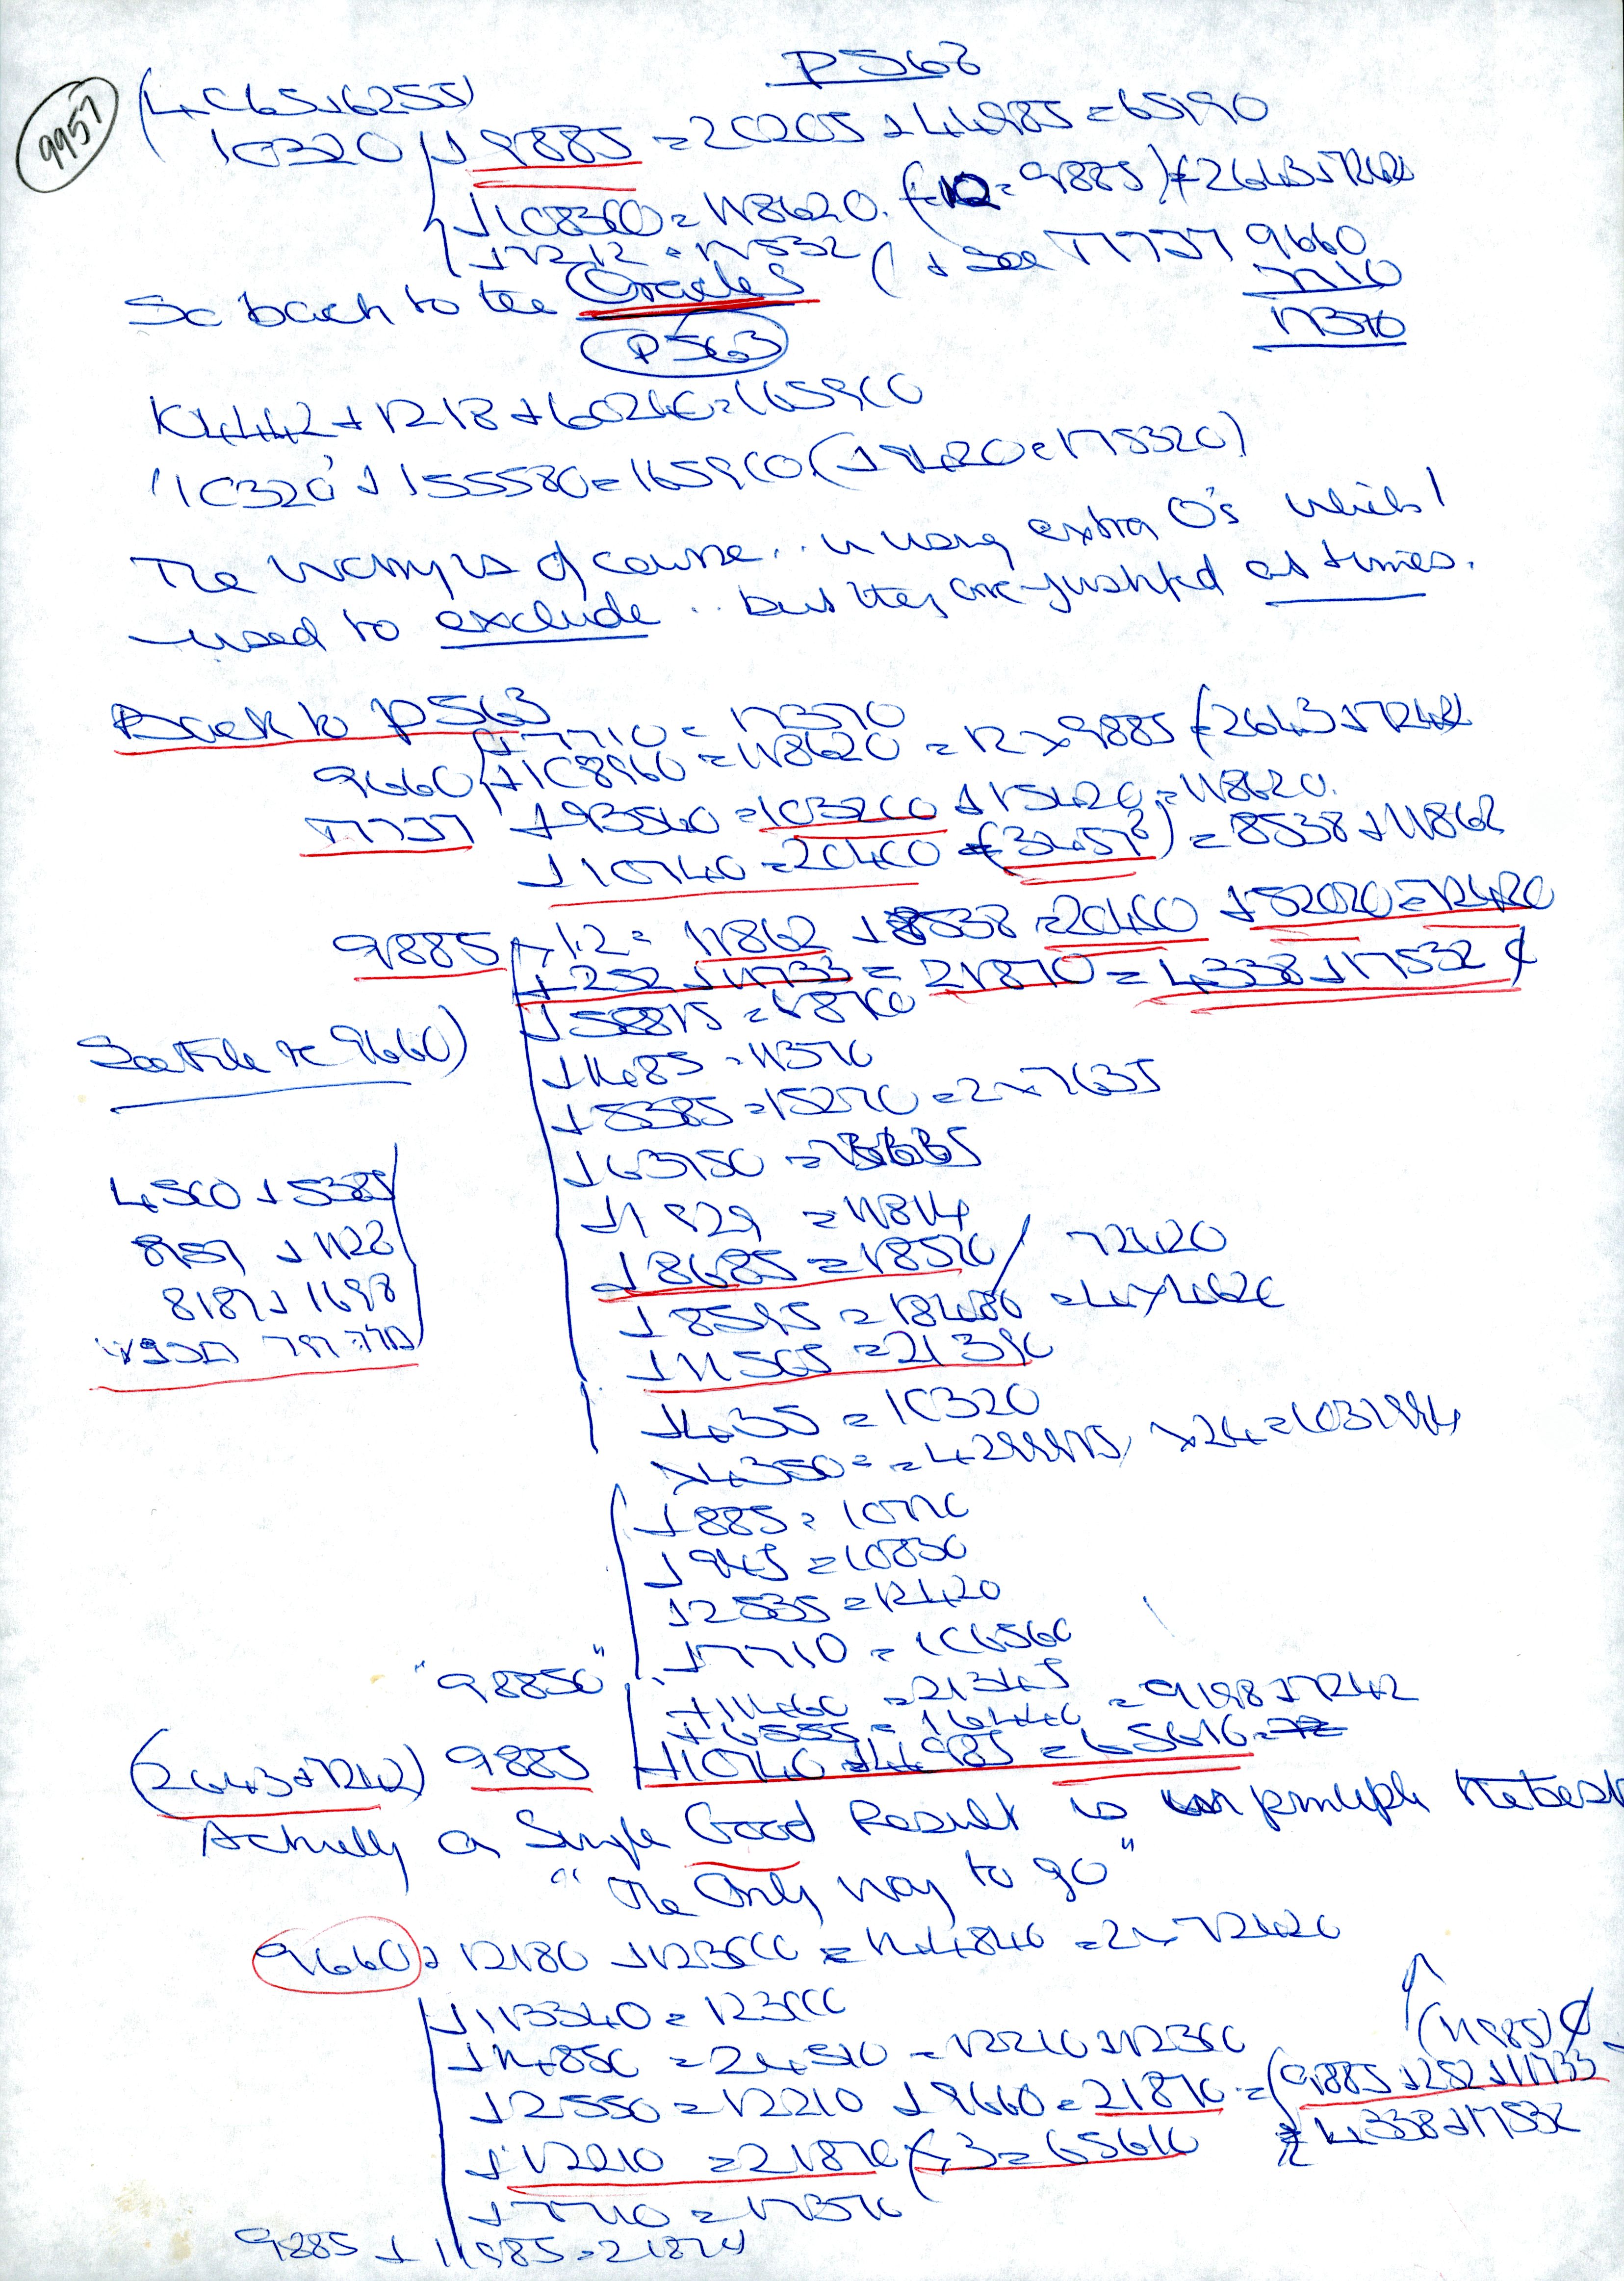 P563
9957
(4065+6255)
10320 + 9885 = 20205 + 44985 = 65190
+108300 = 118620. (÷12 = 9885) (2643+7242
+7212 = 17532 (+ See TT737 9660
7710
17370
So back to the Oracles
P563
104442 + 1218 + 60240 = 165900
'10320' + 155580 = 165900 (+9420 = 175320)
The worry is of course .. in using extra O's which I
used to exclude .. but they are justified at times.
Back to P563
9660 + 7710 = 17370
+108960 = 118620 = 12 x 9885 (2643+7242
TT737 +93540 = 103200 + 15420 = 118620.
+10740 = 20400 = 8538 + 11862
9885 x 1.2 = 11862 + 8538 = 20400 + 52020 = 72420
+252 + 11733 = 21870 = 4338 + 17532 ¢
See File re 9660)
+1485 = 11370
+5385 = 15270 = 2 x 7635
+63750 =
+1929 = 11814
+8685 = 18570 / 72420
+8595 = 18480 = 4 x 4620
+11505 = 21390
+435 = 10320
x 4350 = = 4299975, x 24 = 1031994
4500 + 5385
8757 + 1128
8187 + 1698
+885 = 10770
+945 = 10830
+2535 = 12420
"98850" +7710 = 106560
+11460 = 21345
+6555 = 16440 = 9198 + 7242
(2643+7242) 9885 +10740 + 44985 = 65610
Actually a Single Good Result is in principle the best
"The Only way to go"
9660 + 12180 + 123000 = 144840 = 2 x 72420
+113340 = 123000
+14850 = 24510 = 12210 + 12300
(11985) ¢
+2550 = 12210 + 9660 = 21870 = (9885 + 252 + 11733
+12210 = 21870 (x 3 = 65610 = 4338 + 17532
+7710 = 17370
9885 + 11985 = 21870